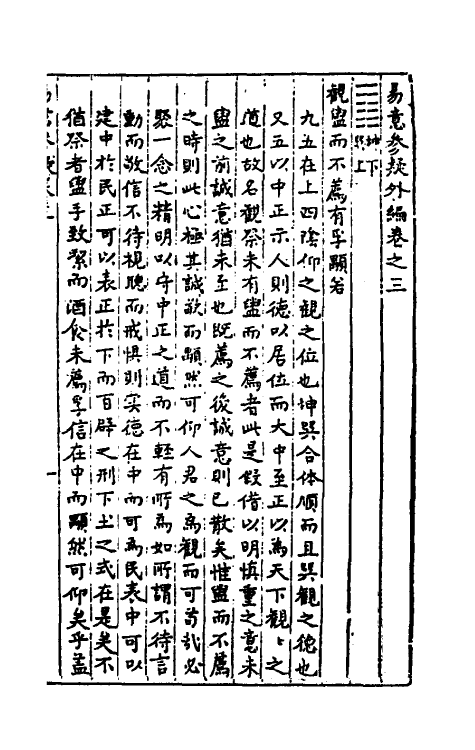 易意參疑外編卷之三
坤下
巽上
觀盥而不薦有孚顒若
九五在上四陰仰之觀之位也坤巽合体順而且巽觀之德也
又五以中正示人則德以居位而大中至正以為天下觀〻之
道也故名觀祭未有盥而不薦者此是假借以明慎重之意未
盥之前誠意猶未至也既薦之後誠意則已散矣惟盥而不薦
之時則此心極其誠敬而顒然可仰人君之為觀而可苟哉必
聚一念之精明以守中正之道而不輕有所為如所謂不待言
動而敬信不待視聽而戒懼則实德在中而可為民表中可以
建中於民正可以表正於下而百辟之刑下土之式在是矣不
猶祭者盥手致潔而酒食未薦孚信在中而顒然可仰矣乎盖